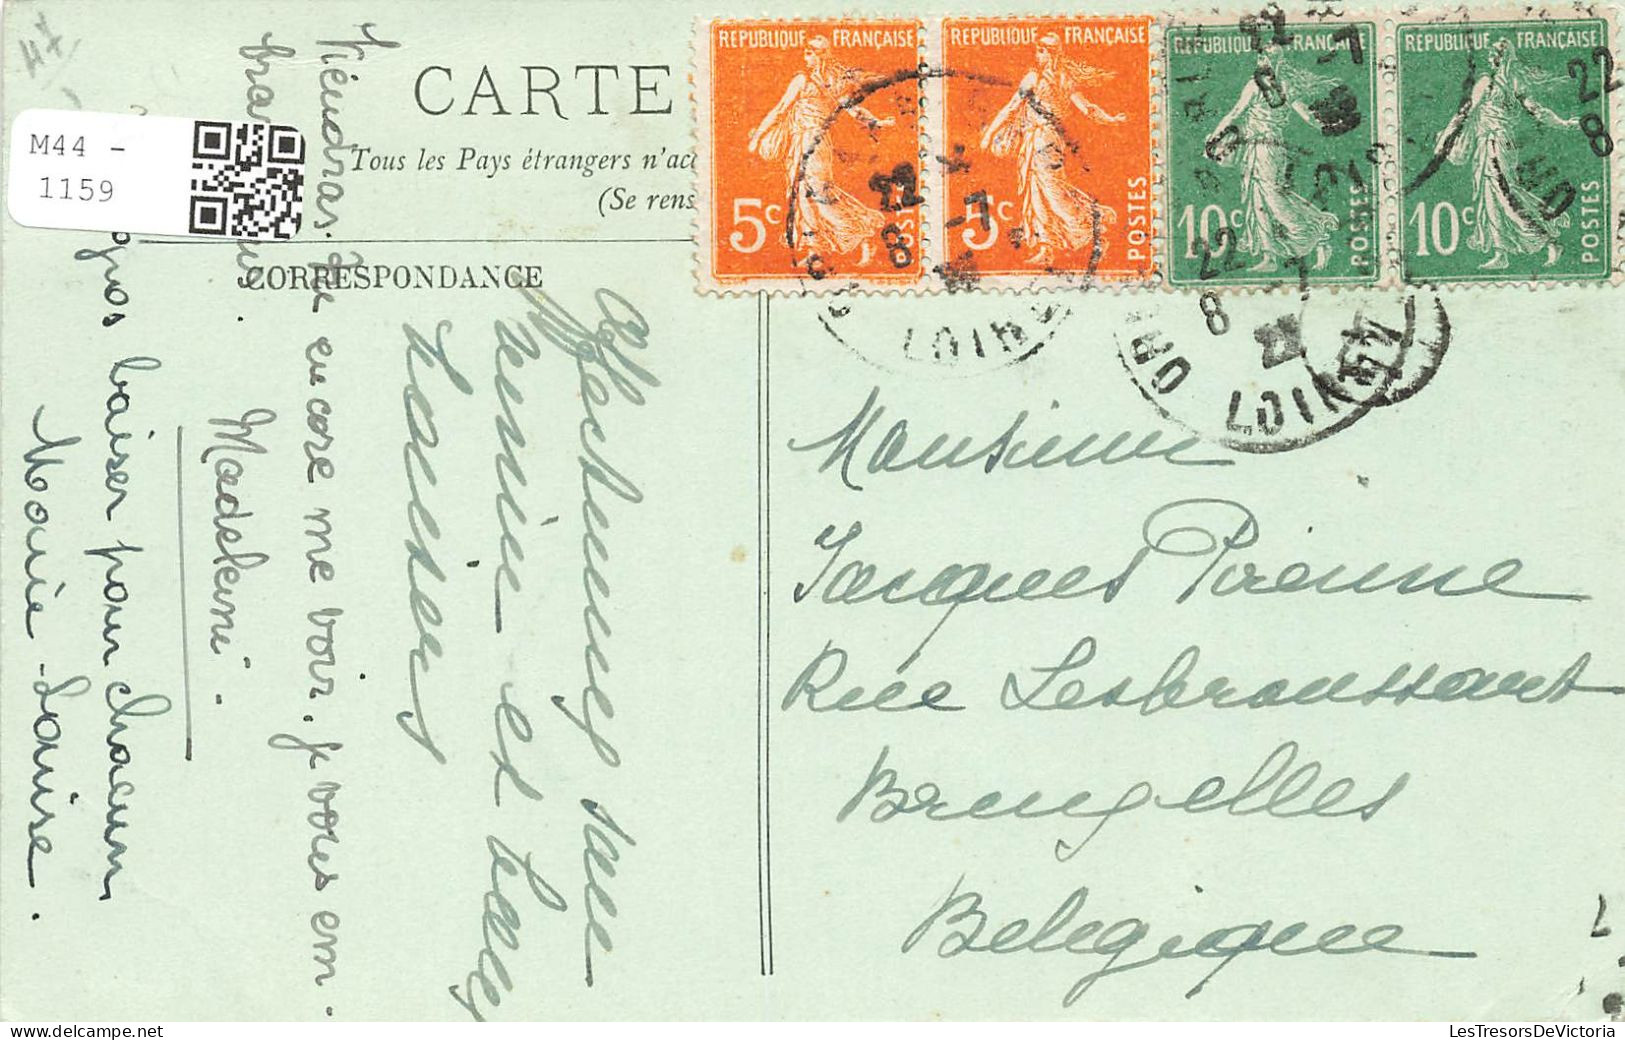 M44 -
1159
CARTE
Tous les Pays étrangers n'acc
(Se rens
CORRESPONDANCE
REPUBLIQUE FRANÇAISE
5c
POSTES
REPUBLIQUE FRANÇAISE
5c
POSTES
REPUBLIQUE FRANÇAISE
10c
POSTES
REPUBLIQUE FRANÇAISE
10c
POSTES
22
8 -7
LOIRET
22
8 -7
22
LOIRET
22
8
Viendras-tu encore me voir, je vous em
Madeleine.
gros baiser pour chacun
Marie-Louise.
Affectueuse
et
baisers
Monsieur
Jacques
Rue Lesbroussart
Bruxelles
Belgique
LesTresorsDeVictoria.com